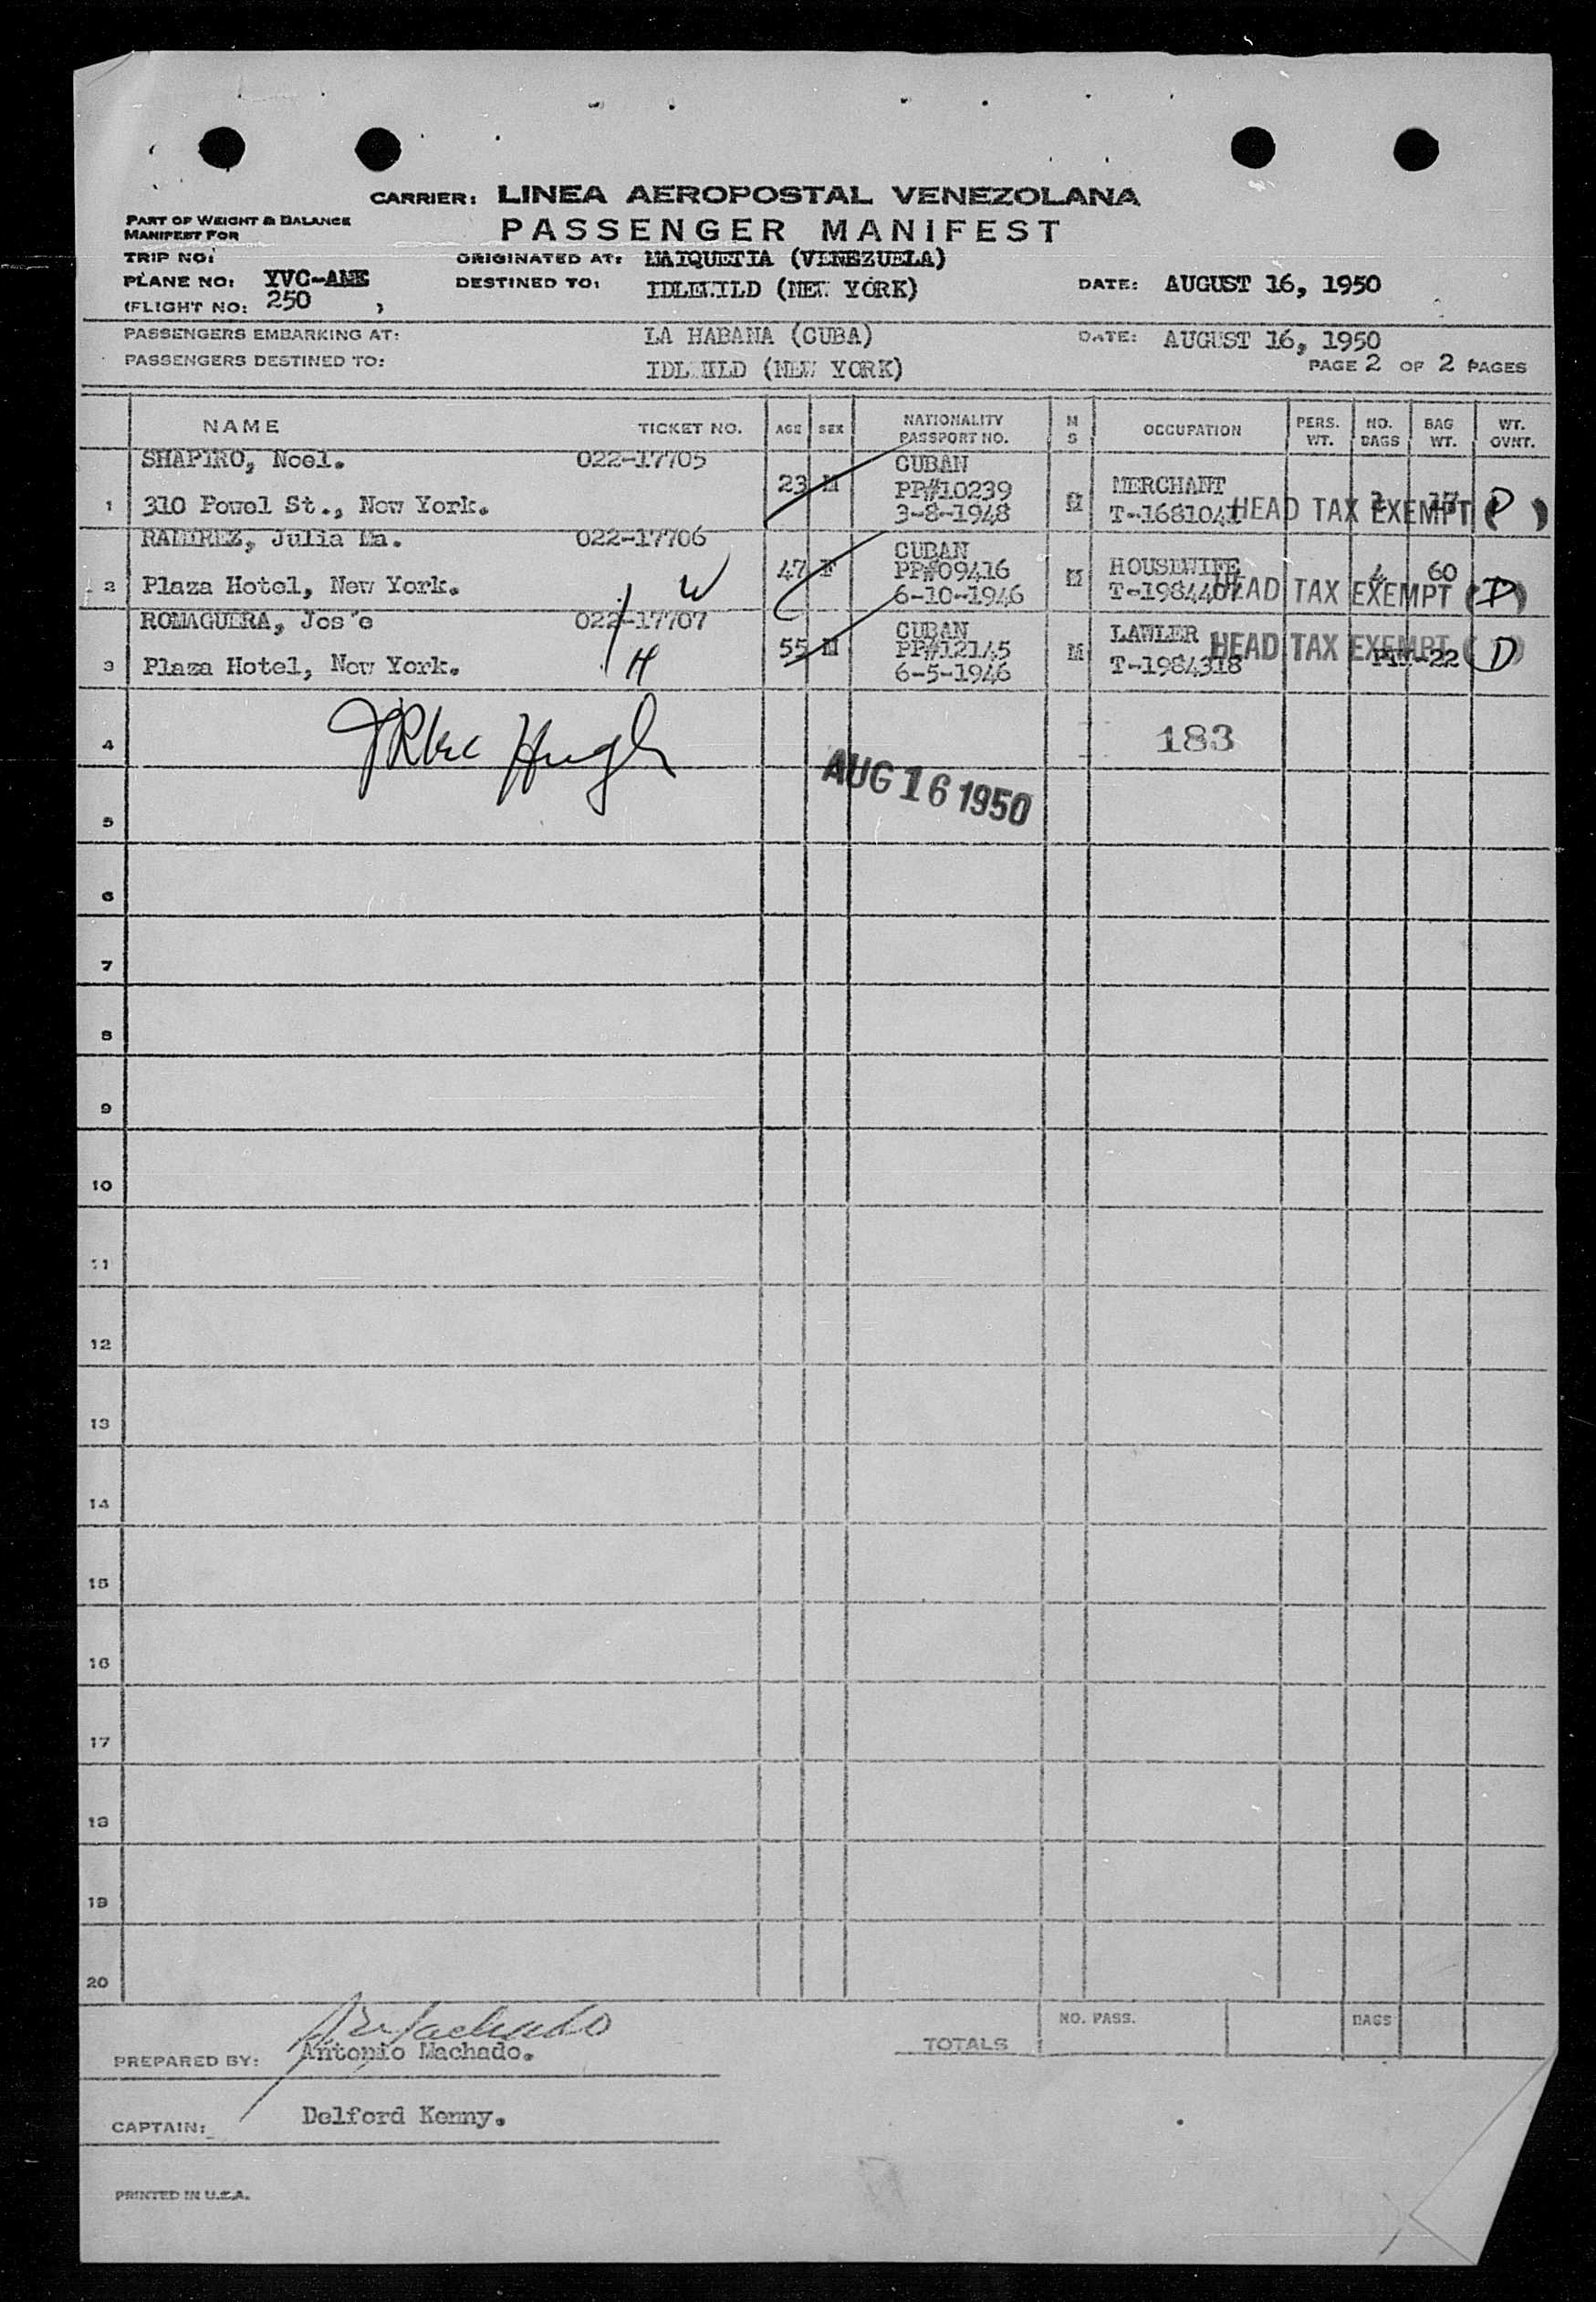 CARRIER: LINEA AEROPOSTAL VENEZOLANA
PART OF WEIGHT & BALANCE
MANIFEST FOR
PASSENGER MANIFEST
TRIP NO:
ORIGINATED AT: MAIQUETIA (VENEZUELA)
PLANE NO: YVC-AME
DESTINED TO: IDLEWILD (NEW YORK)
DATE: AUGUST 16, 1950
(FLIGHT NO: 250 )
PASSENGERS EMBARKING AT: LA HABANA (CUBA)
DATE: AUGUST 16, 1950
PASSENGERS DESTINED TO: IDLEWILD (NEW YORK)
PAGE 2 OF 2 PAGES
NAME TICKET NO. AGE SEX NATIONALITY PASSPORT NO. M S OCCUPATION PERS. WT. NO. BAGS BAG WT. WT. OVNT.
SHAPIRO, Noel. 022-17705 CUBAN
23 M PP#10239 MERCHANT
1 310 Powel St., New York. 3-8-1948 T-1681041 HEAD TAX EXEMPT (D)
RAMIREZ, Julia Ma. 022-17706 CUBAN
47 F PP#09416 M HOUSEWIFE 4 60
2 Plaza Hotel, New York. W 6-10-1946 T-1984407 HEAD TAX EXEMPT (D)
ROMAGUERA, Jos´e 022-17707 CUBAN LAWLER
55 M PP#12145 M HEAD TAX EXEMPT (D)
3 Plaza Hotel, New York. H 6-5-1946 T-1984318 -22
4 183
AUG 16 1950
5
6
7
8
9
10
11
12
13
14
15
16
17
18
19
20
NO. PASS. BAGS
TOTALS
PREPARED BY: Antonio Machado.
CAPTAIN: Delford Kenny.
PRINTED IN U.S.A.